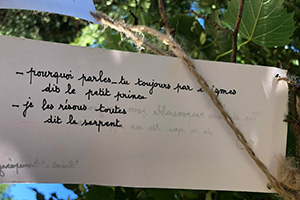 - pourquoi parles-tu toujours par énigmes
dit le petit prince
- je les résous toutes
dit le serpent